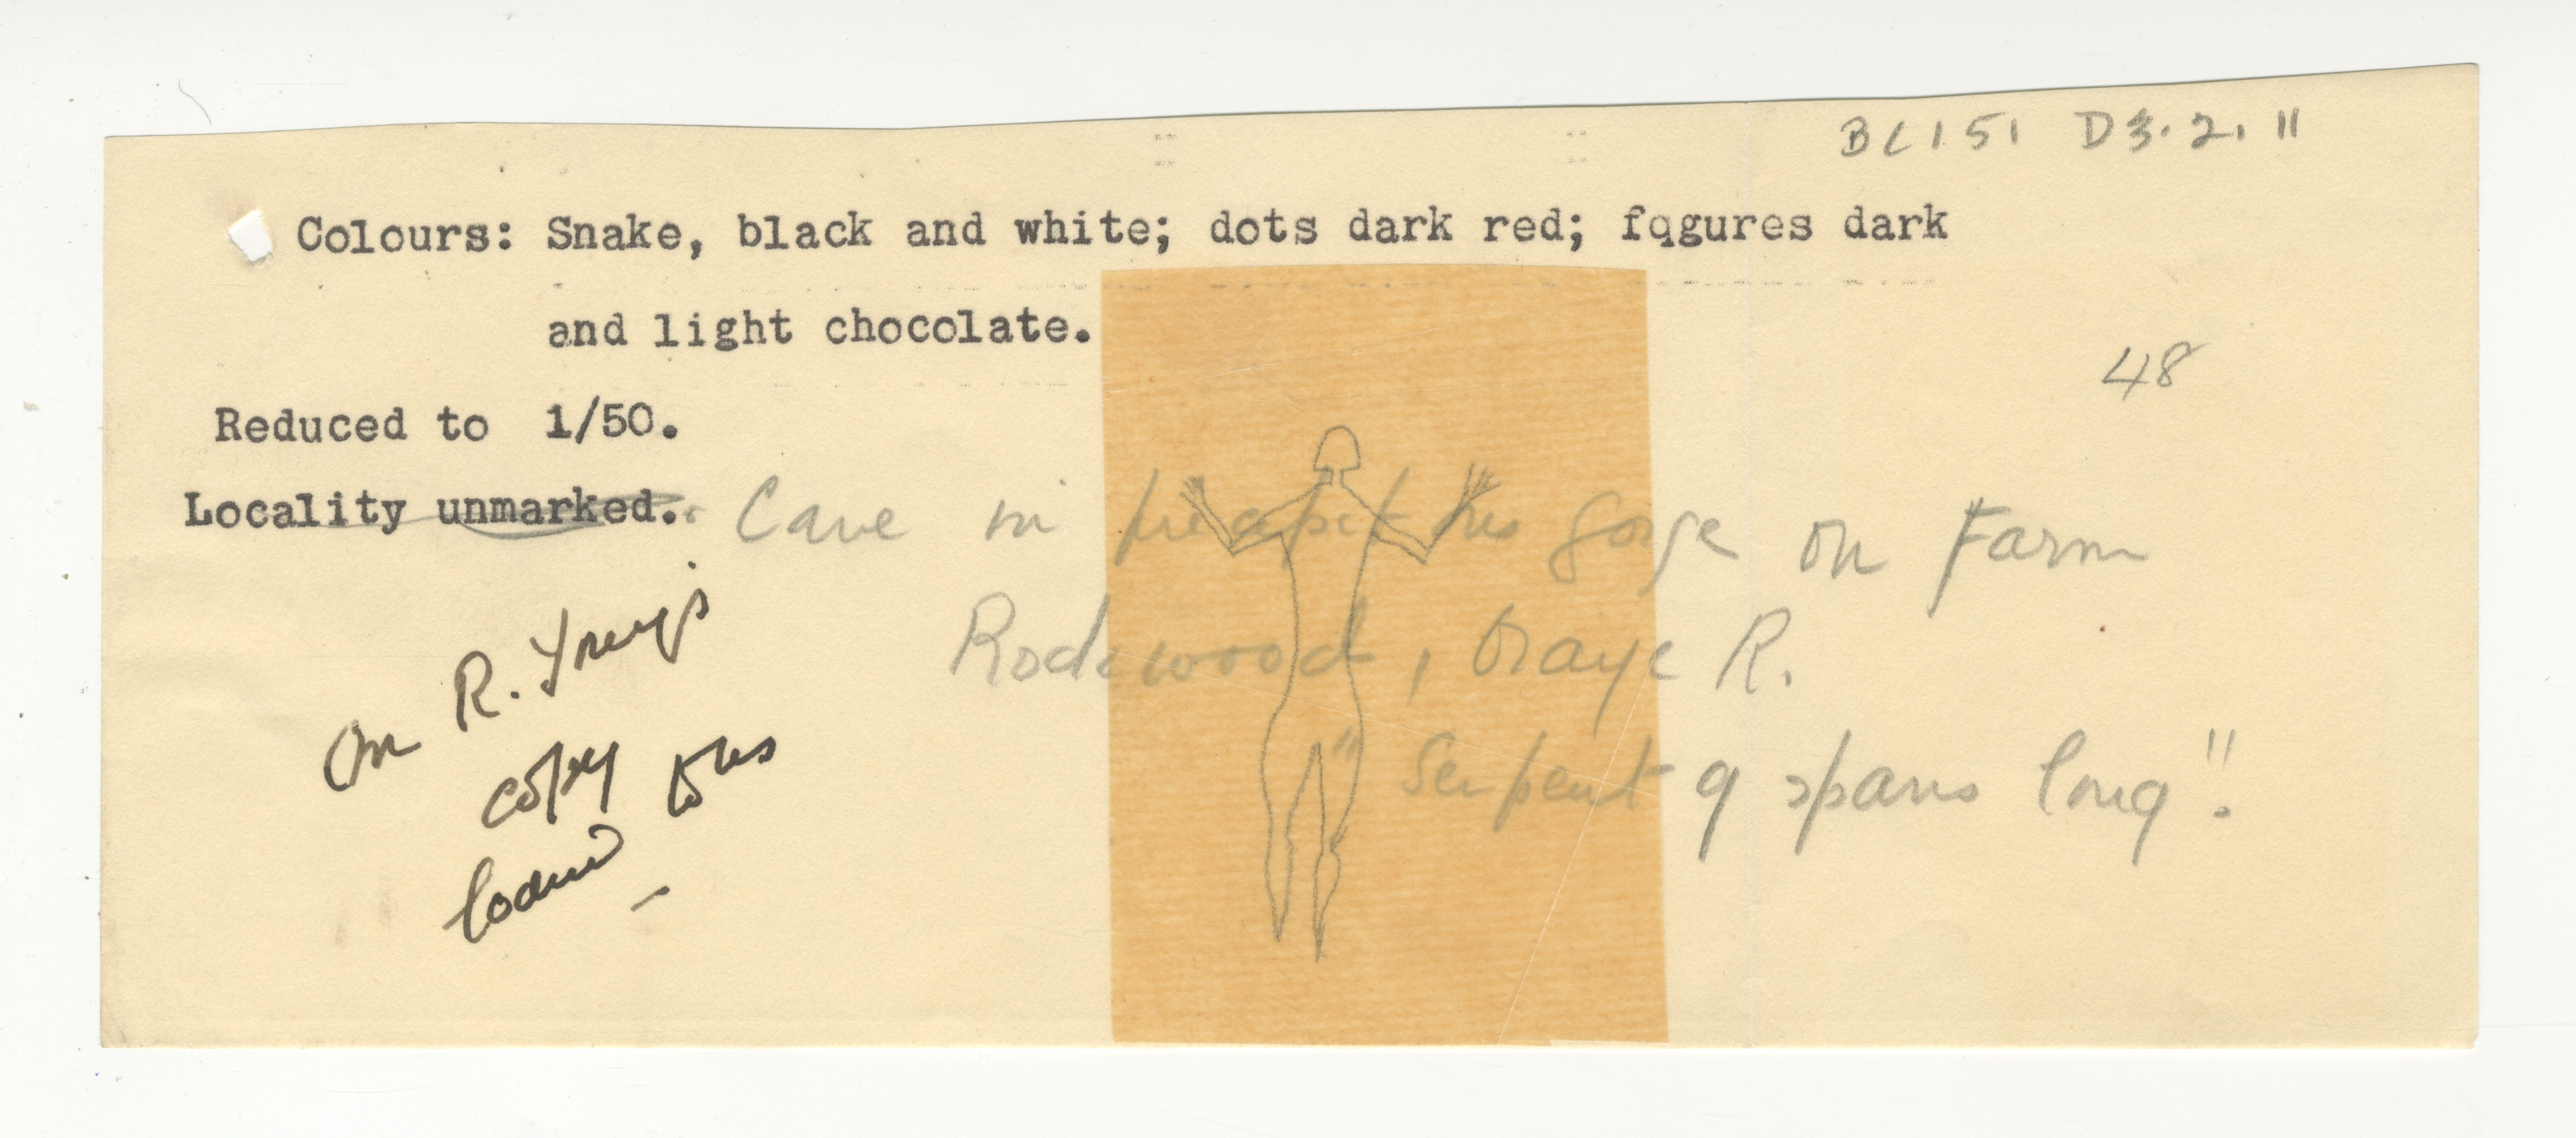 BC151 D3.2.11
Colours: Snake, black and white; dots dark red; fqgures dark
and light chocolate.
48
Reduced to 1/50.
Locality unmarked. Cave in precipitous gorge on Farm
Rockwood, Orange R.
"Serpent 9 spans long"!
On R. Young's
copy